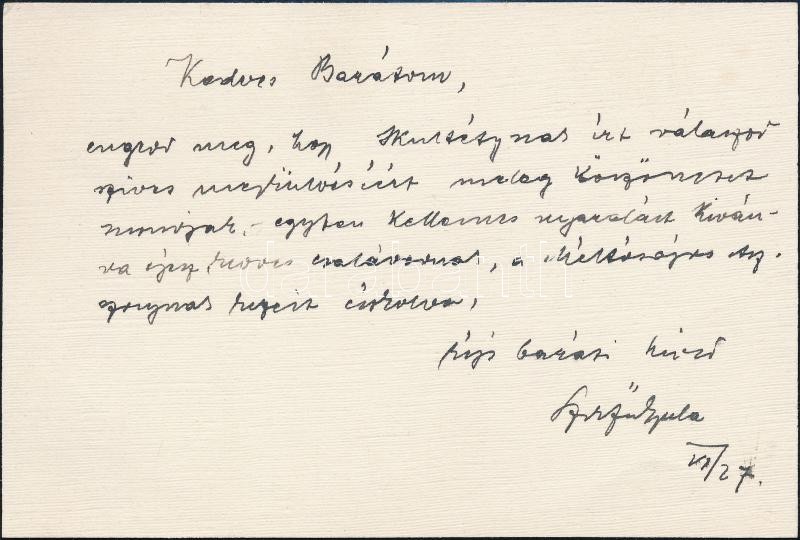 Kedves Barátom,
engedd meg, hogy Skultétynak írt válaszod
szíves megküldéséért meleg köszönetet
mondjak, egyben kellemes nyaralást kíván-
va egész kedves családodnak, a Méltóságos Asz-
szonynak kezeit csókolva,
régi baráti híved
Szekfű Gyula
VI/27.
darabanth